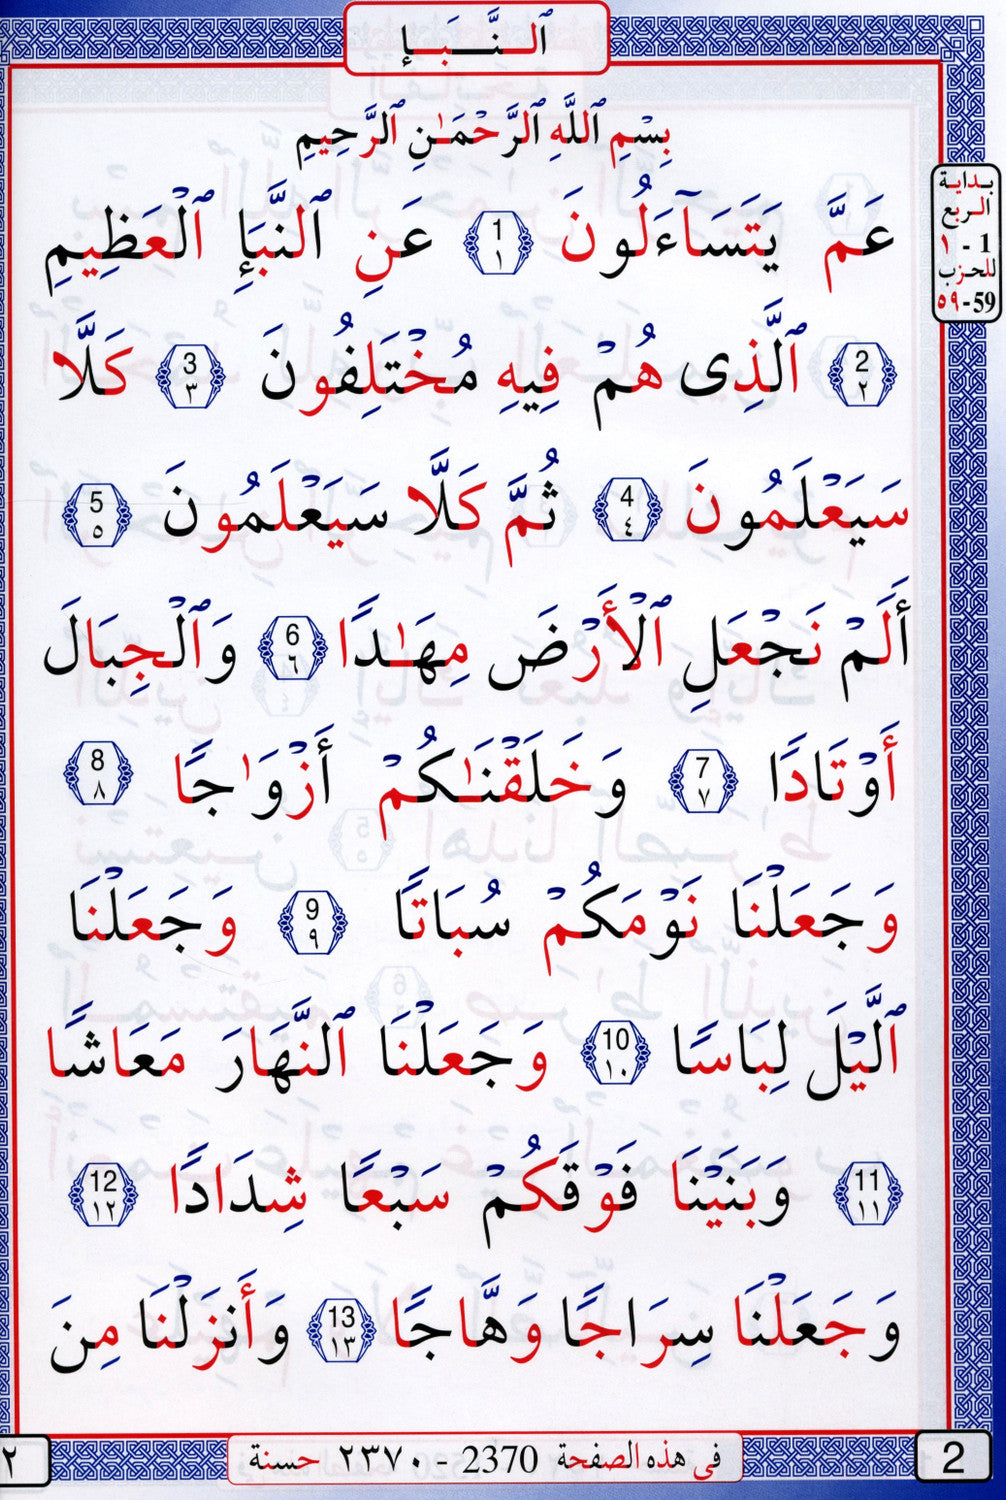 ٱلنَّبَإِ
بِسْمِ ٱللَّهِ ٱلرَّحْمَـٰنِ ٱلرَّحِيمِ
عَمَّ يَتَسَآءَلُونَ 1 ١ عَنِ ٱلنَّبَإِ ٱلْعَظِيمِ
2 ٢ ٱلَّذِى هُمْ فِيهِ مُخْتَلِفُونَ 3 ٣ كَلَّا
سَيَعْلَمُونَ 4 ٤ ثُمَّ كَلَّا سَيَعْلَمُونَ 5 ٥
أَلَمْ نَجْعَلِ ٱلْأَرْضَ مِهَـٰدًا 6 ٦ وَٱلْجِبَالَ
أَوْتَادًا 7 ٧ وَخَلَقْنَـٰكُمْ أَزْوَٰجًا 8 ٨
وَجَعَلْنَا نَوْمَكُمْ سُبَاتًا 9 ٩ وَجَعَلْنَا
ٱلَّيْلَ لِبَاسًا 10 ١٠ وَجَعَلْنَا ٱلنَّهَارَ مَعَاشًا
11 ١١ وَبَنَيْنَا فَوْقَكُمْ سَبْعًا شِدَادًا 12 ١٢
وَجَعَلْنَا سِرَاجًا وَهَّاجًا 13 ١٣ وَأَنزَلْنَا مِنَ
بداية
الربع
1 - ١
للحزب
59-٥٩
2
في هذه الصفحة 2370 - ٢٣٧٠ حسنة
٢